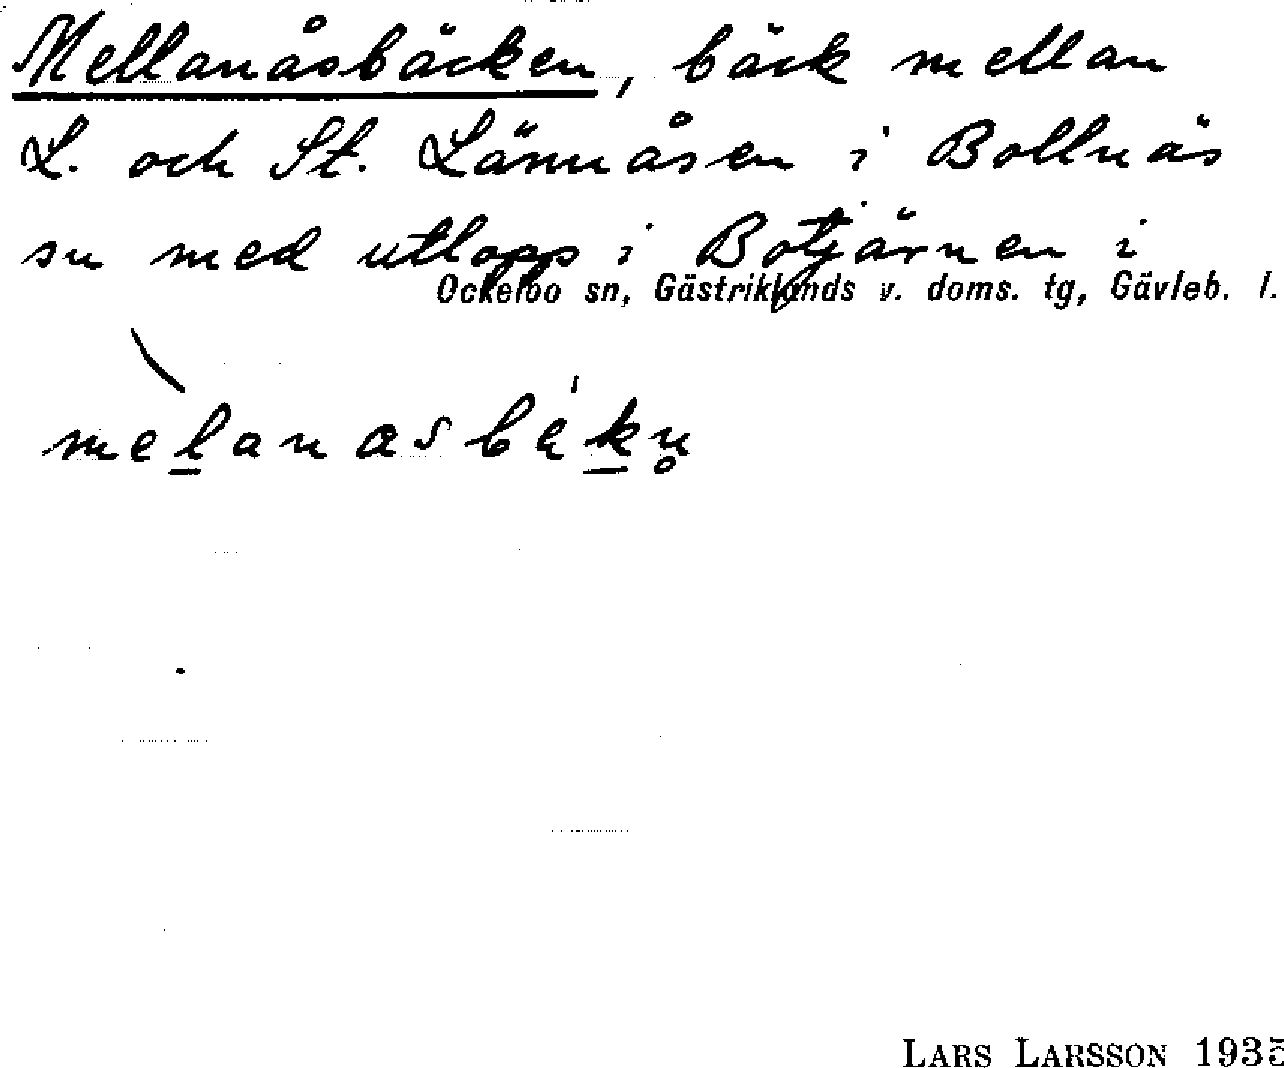 Mellanåsbäcken, bäck mellan
L. och St. Lännåsen i Bollnäs
sn med utlopp i Botjärnen i
Ockelbo sn, Gästriklands v. doms. tg, Gävleb. l.
melanasbäkn̥
LARS LARSSON 1935